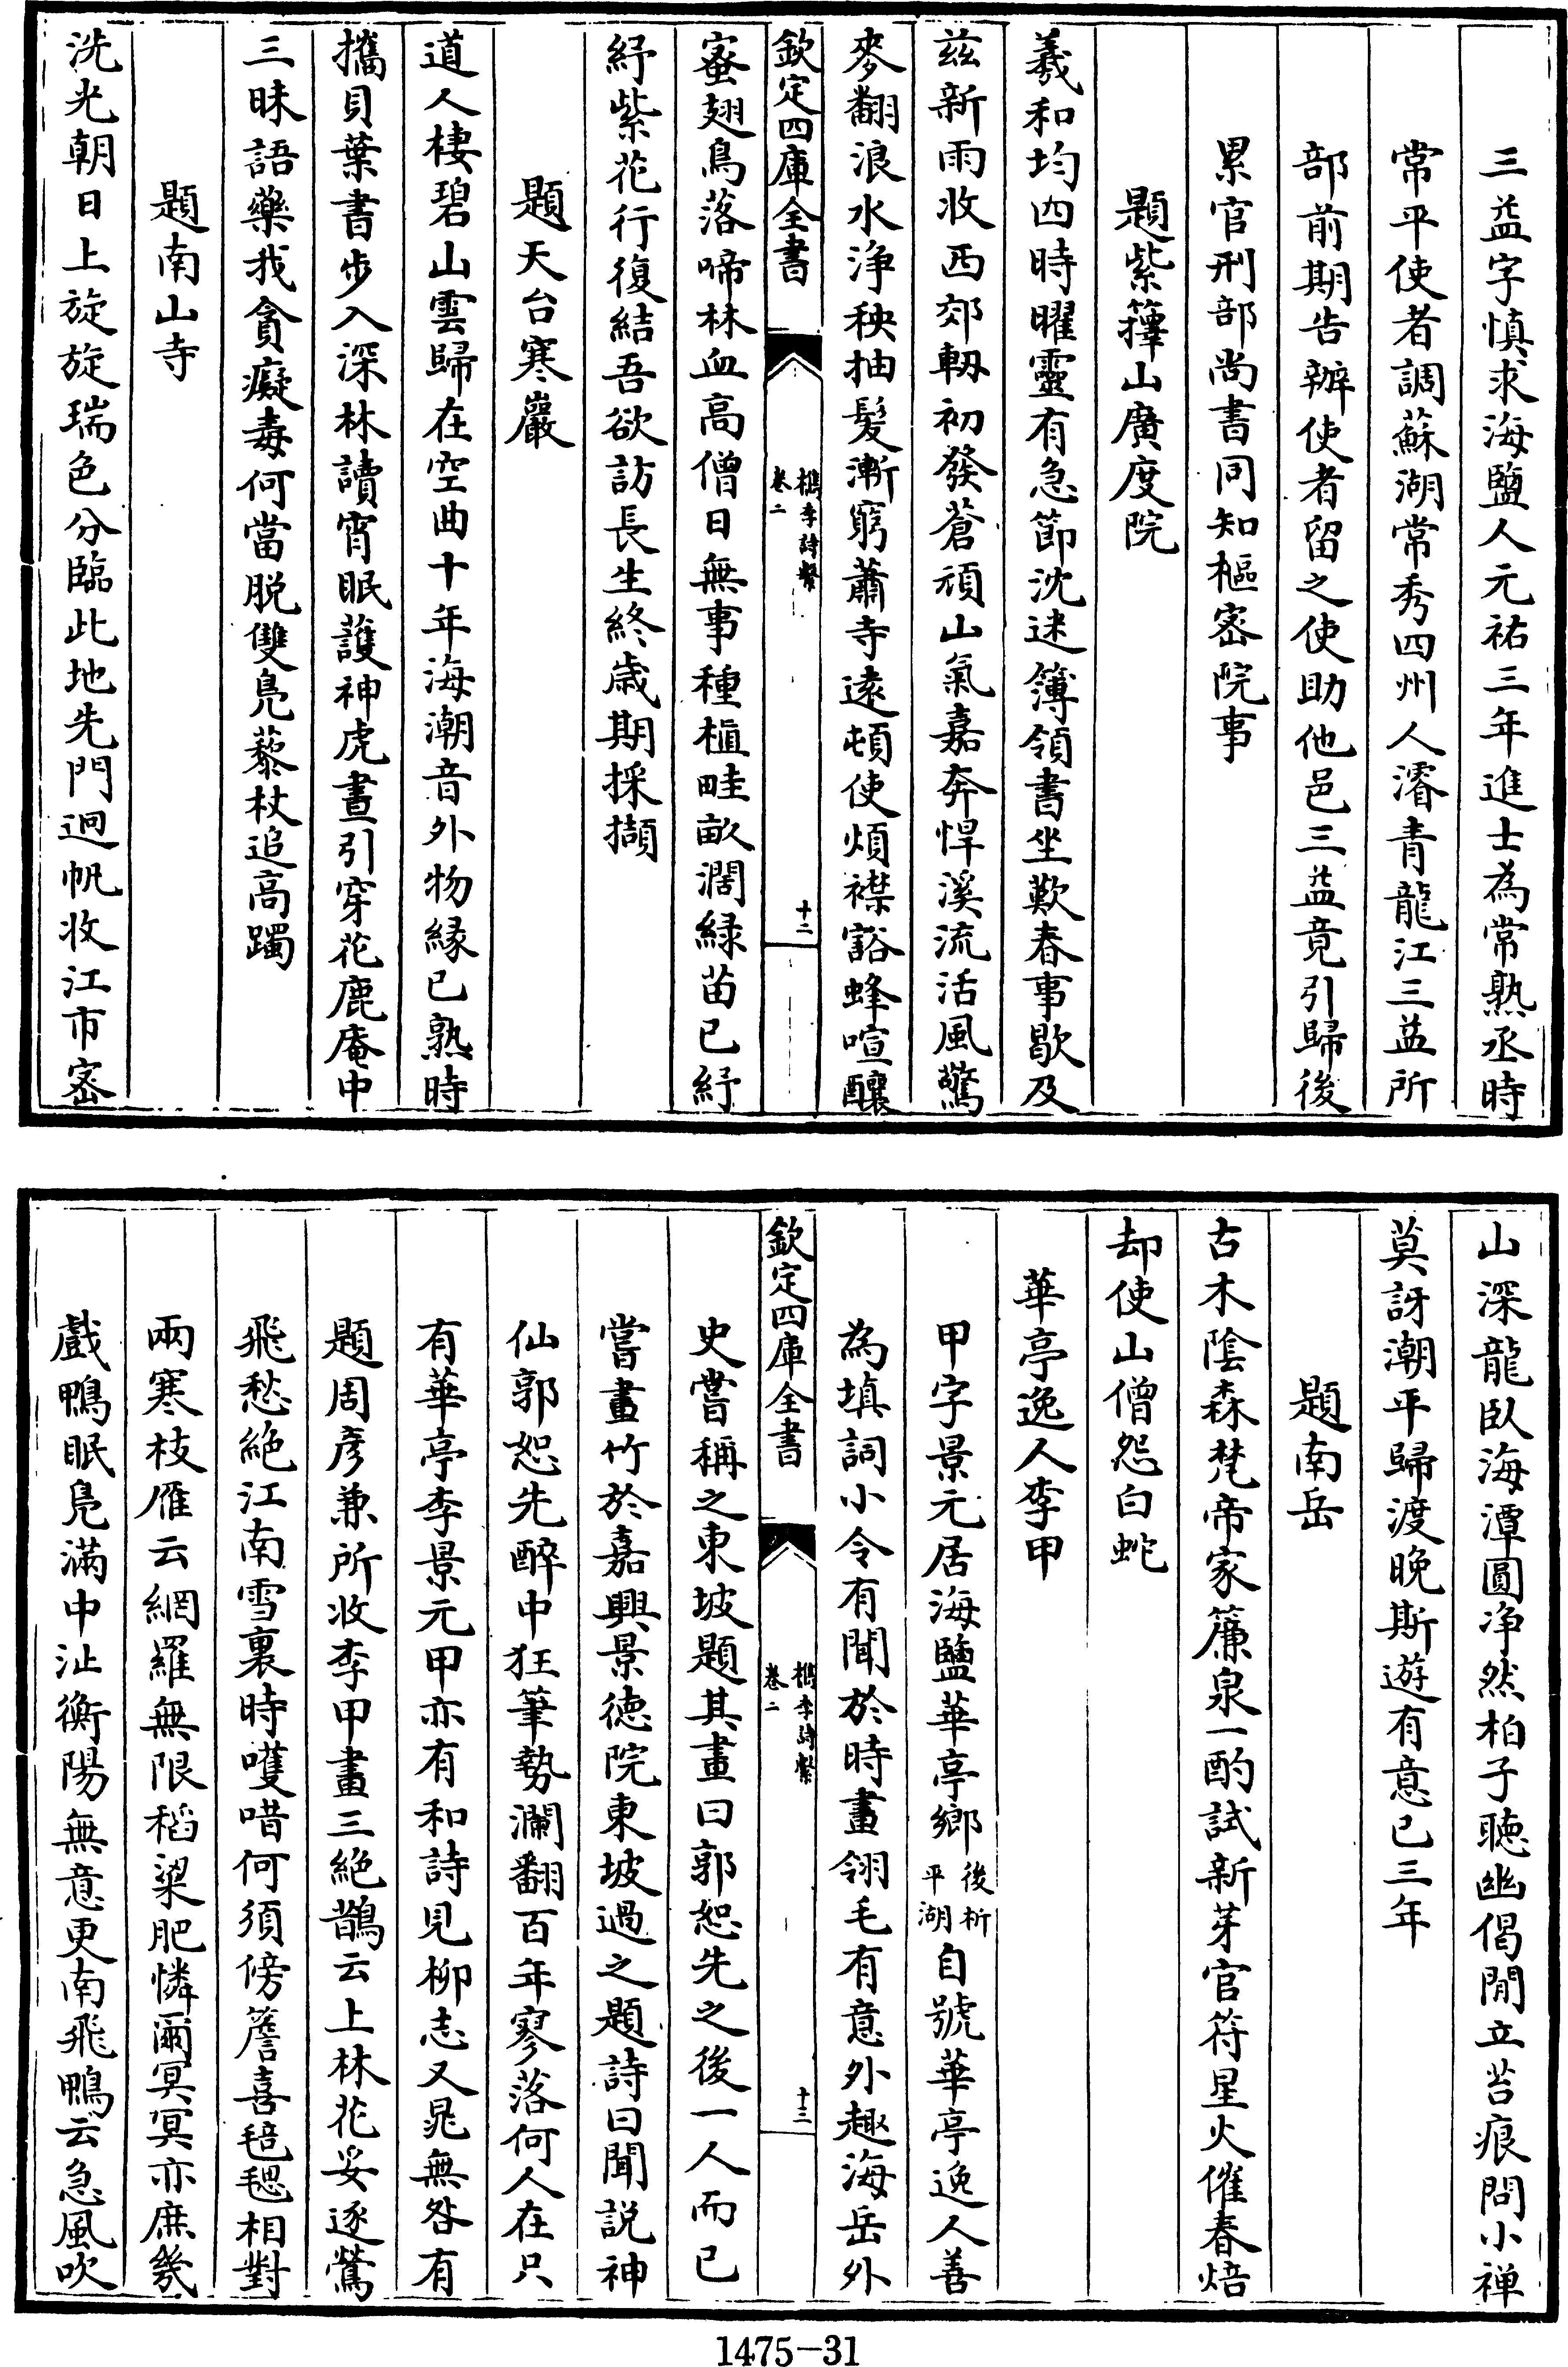 三益字慎求海鹽人元祐三年進士為常熟丞時
常平使者調蘇湖常秀四州人濬青龍江三益所
部前期告辦使者留之使助他邑三益竟引歸後
累官刑部尚書同知樞密院事
題紫籜山廣度院
羲和均四時曜靈有急節沈迷簿領書坐歎春事歇及
兹新雨收西郊軔初發蒼頑山氣嘉奔悍溪流活風驚
麥翻浪水浄秧抽髮漸窮蕭寺遠頓使煩襟豁蜂喧釀
欽定四庫全書
檇李詩繫
卷二
十二
蜜翅鳥落啼林血高僧日無事種植畦畝濶緑苗已紆
紆紫花行復結吾欲訪長生終歲期採擷
題天台寒巖
道人棲碧山雲歸在空曲十年海潮音外物緣已熟時
攜貝葉書步入深林讀宵眠護神虎晝引穿花鹿庵中
三昧語藥我貪癡毒何當脱雙鳧藜杖追高躅
題南山寺
洗光朝日上旋旋瑞色分臨此地先門迥帆收江市密
山深龍臥海潭圓浄然柏子聴幽偈閒立苔痕問小禅
莫訝潮平歸渡晚斯遊有意已三年
題南岳
古木陰森梵帝家簾泉一酌試新芽官符星火催春焙
却使山僧怨白蛇
華亭逸人李甲
甲字景元居海鹽華亭鄉後析平湖自號華亭逸人善
為填詞小令有聞於時畫翎毛有意外趣海岳外
欽定四庫全書
檇李詩繫
卷二
十三
史嘗稱之東坡題其畫曰郭恕先之後一人而已
嘗畫竹於嘉興景徳院東坡過之題詩曰聞説神
仙郭恕先醉中狂筆勢瀾翻百年寥落何人在只
有華亭李景元甲亦有和詩見柳志又晁無咎有
題周彦兼所收李甲畫三絶鵲云上林花妥逐鶯
飛愁絶江南雪裏時嚄唶何須傍簷喜毰毸相對
兩寒枝雁云網羅無限稻粱肥憐爾冥冥亦庶幾
戲鴨眠鳧滿中沚衡陽無意更南飛鴨云急風吹
1475-31